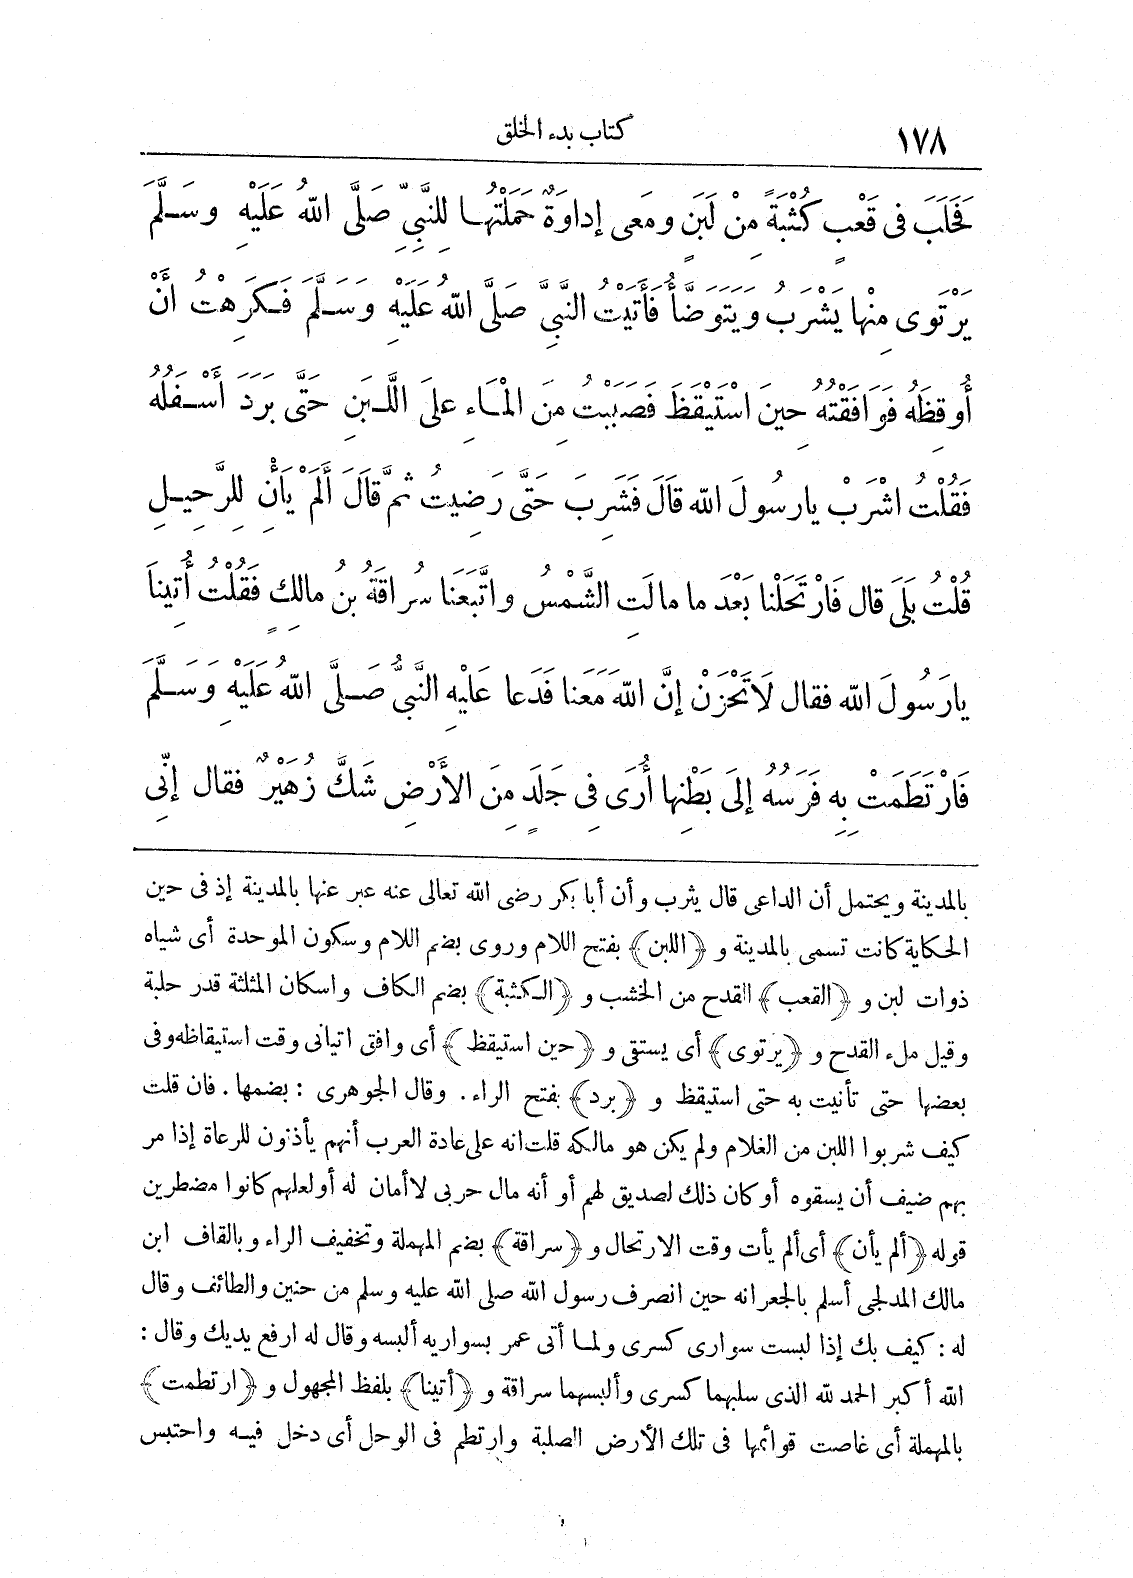 ١٧٨ كتاب بدء الخلق
فَحَلَبَ فى قَعْبٍ كُثْبَةً مِنْ لَبَنٍ ومَعى إداوَةٌ حَمَلْتُهَا لِلنَّبِيِّ صَلَّى اللهُ عَلَيْهِ وَسَلَّمَ
يَرْتَوى مِنْها يَشْرَبُ ويَتَوَضَّأُ فَأَتَيْتُ النَّبِيَّ صَلَّى اللهُ عَلَيْهِ وَسَلَّمَ فَكَرِهْتُ أَنْ
أُوقِظَهُ فَوَافَقْتُهُ حِينَ اسْتَيْقَظَ فَصَبَبْتُ مِنَ الْمَاءِ عَلَى اللَّبَنِ حَتَّى بَرَدَ أَسْفَلُهُ
فَقُلْتُ اشْرَبْ يارسُولَ الله قَالَ فَشَرِبَ حَتَّى رَضِيتُ ثمَّ قَالَ أَلَمْ يَأْنِ لِلرَّحِيلِ
قُلْتُ بَلَى قال فَارْتَحَلْنا بَعْدَ ما مالَتِ الشَّمْسُ واتَّبَعَنا سُراقَةُ بنُ مالِكٍ فَقُلْتُ أُتِينَا
يارَسُولَ الله فقال لَاتَحْزَنْ إنَّ اللهَ مَعَنا فَدَعا عَلَيْهِ النَّبيُّ صَلَّى اللهُ عَلَيْهِ وَسَلَّمَ
فَارْتَطَمَتْ بِهِ فَرَسُهُ إلَى بَطْنِها أُرَى فِى جَلَدٍ مِنَ الأَرْضِ شَكَّ زُهَيْرٌ فقال إنِّى
بالمدينة ويحتمل أن الداعى قال يثرب وأن أبا بكر رضى الله تعالى عنه عبر عنها بالمدينة إذ فى حين
الحكاية كانت تسمى بالمدينة و ﴿اللبن﴾ بفتح اللام وروى بضم اللام وسكون الموحدة أى شياه
ذوات لبن و ﴿القعب﴾ القدح من الخشب و ﴿الكثبة﴾ بضم الكاف واسكان المثلثة قدر حلبة
وقيل ملء القدح و ﴿يرتوى﴾ أى يستقى و ﴿حين استيقظ﴾ أى وافق اتيانى وقت استيقاظه وفى
بعضها حتى تأنيت به حتى استيقظ و ﴿برد﴾ بفتح الراء. وقال الجوهرى : بضمها. فان قلت
كيف شربوا اللبن من الغلام ولم يكن هو مالكه قلت انه على عادة العرب أنهم يأذنون للرعاة إذا مر
بهم ضيف أن يسقوه أو كان ذلك لصديق لهم أو أنه مال حربى لا أمان له أو لعلهم كانوا مضطرين
قوله ﴿ألم يأن﴾ أى ألم يأت وقت الارتحال و ﴿سراقة﴾ بضم المهملة وتخفيف الراء وبالقاف ابن
مالك المدلجى أسلم بالجعرانه حين انصرف رسول الله صلى الله عليه وسلم من حنين والطائف وقال
له : كيف بك إذا لبست سوارى كسرى ولما أتى عمر بسواريه ألبسه وقال له ارفع يديك وقال :
الله أكبر الحمد لله الذى سلبهما كسرى وألبسهما سراقة و ﴿أتينا﴾ بلفظ المجهول و ﴿ارتطمت﴾
بالمهملة أى غاصت قوائمها فى تلك الأرض الصلبة وارتطم فى الوحل أى دخل فيه واحتبس